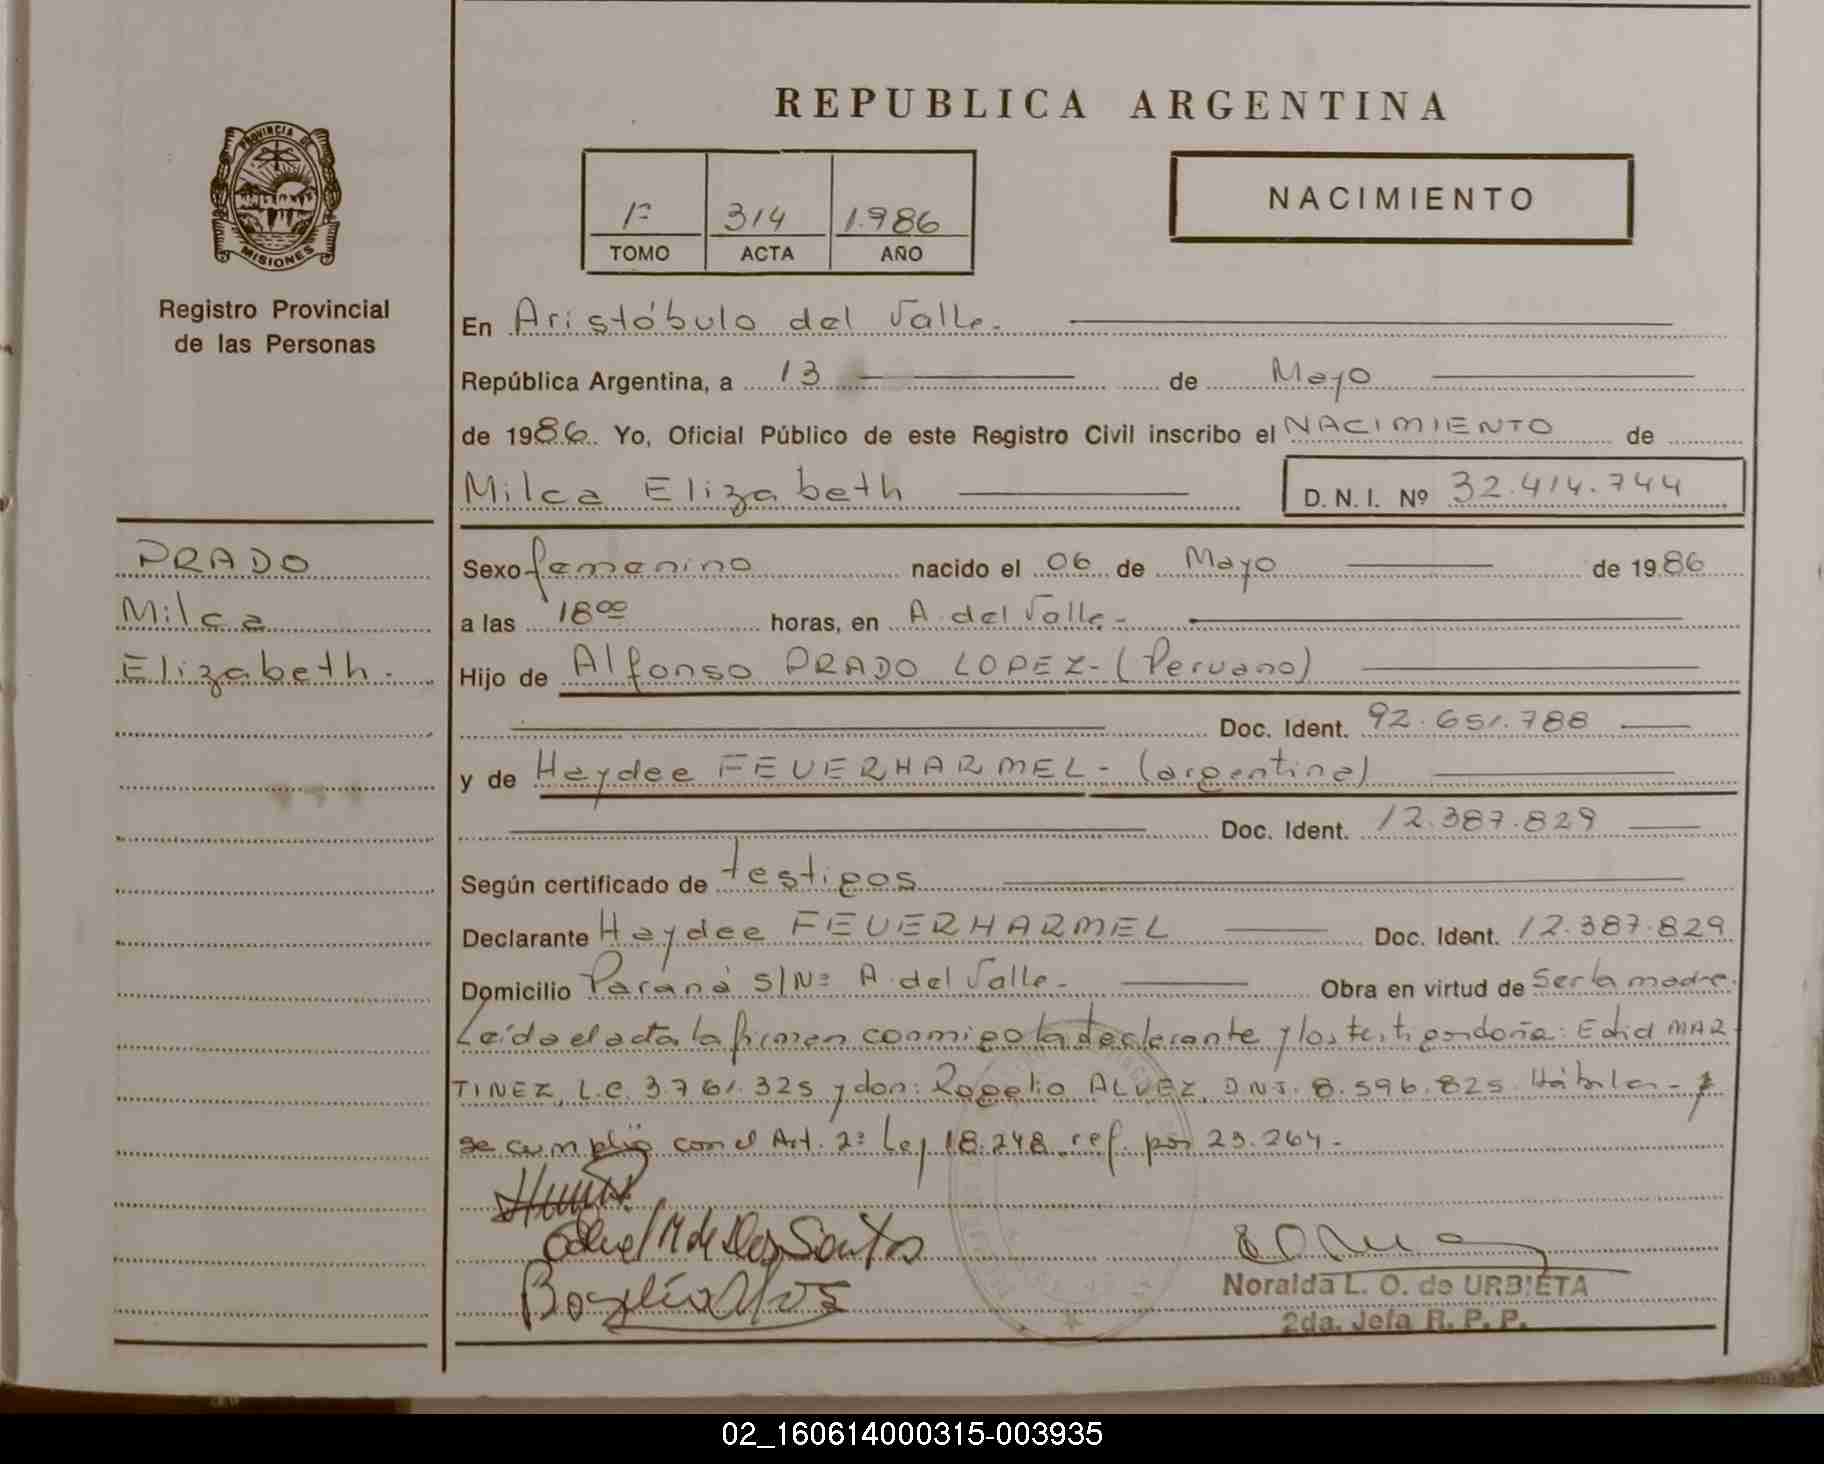 REPUBLICA ARGENTINA
PROVINCIA DE
MISIONES
Registro Provincial
de las Personas
1º 314 1.986
TOMO ACTA AÑO
NACIMIENTO
En Aristóbulo del Valle.
República Argentina, a 13 de Mayo
de 1986. Yo, Oficial Público de este Registro Civil inscribo el NACIMIENTO de
Milca Elizabeth D. N. I. Nº 32.414.744
PRADO
Milca
Elizabeth.
Sexo femenino nacido el 06 de Mayo de 1986
a las 18⁰⁰ horas, en A. del Valle.-
Hijo de Alfonso PRADO LOPEZ-(Peruano)
Doc. Ident. 92.651.788
y de Haydee FEUERHARMEL-(argentina)
Doc. Ident. 12.387.829
Según certificado de testigos
Declarante Haydee FEUERHARMEL Doc. Ident. 12.387.829
Domicilio Paraná S/Nº A. del Valle.- Obra en virtud de Ser la madre.
Leída el acta la firman conmigo la declarante y los testigos doña: Edid MAR-
TINEZ, L.C. 3.761.325 y don: Rogelio ALVEZ, DNI. 8.596.825. Hábiles- y
se cumplió con el Art. 2º Ley 18.248 ref. por 23.264.-
M de Dos Santos
Noralda L. O. de URBIETA
2da. Jefa R. P. P.
02_160614000315-003935